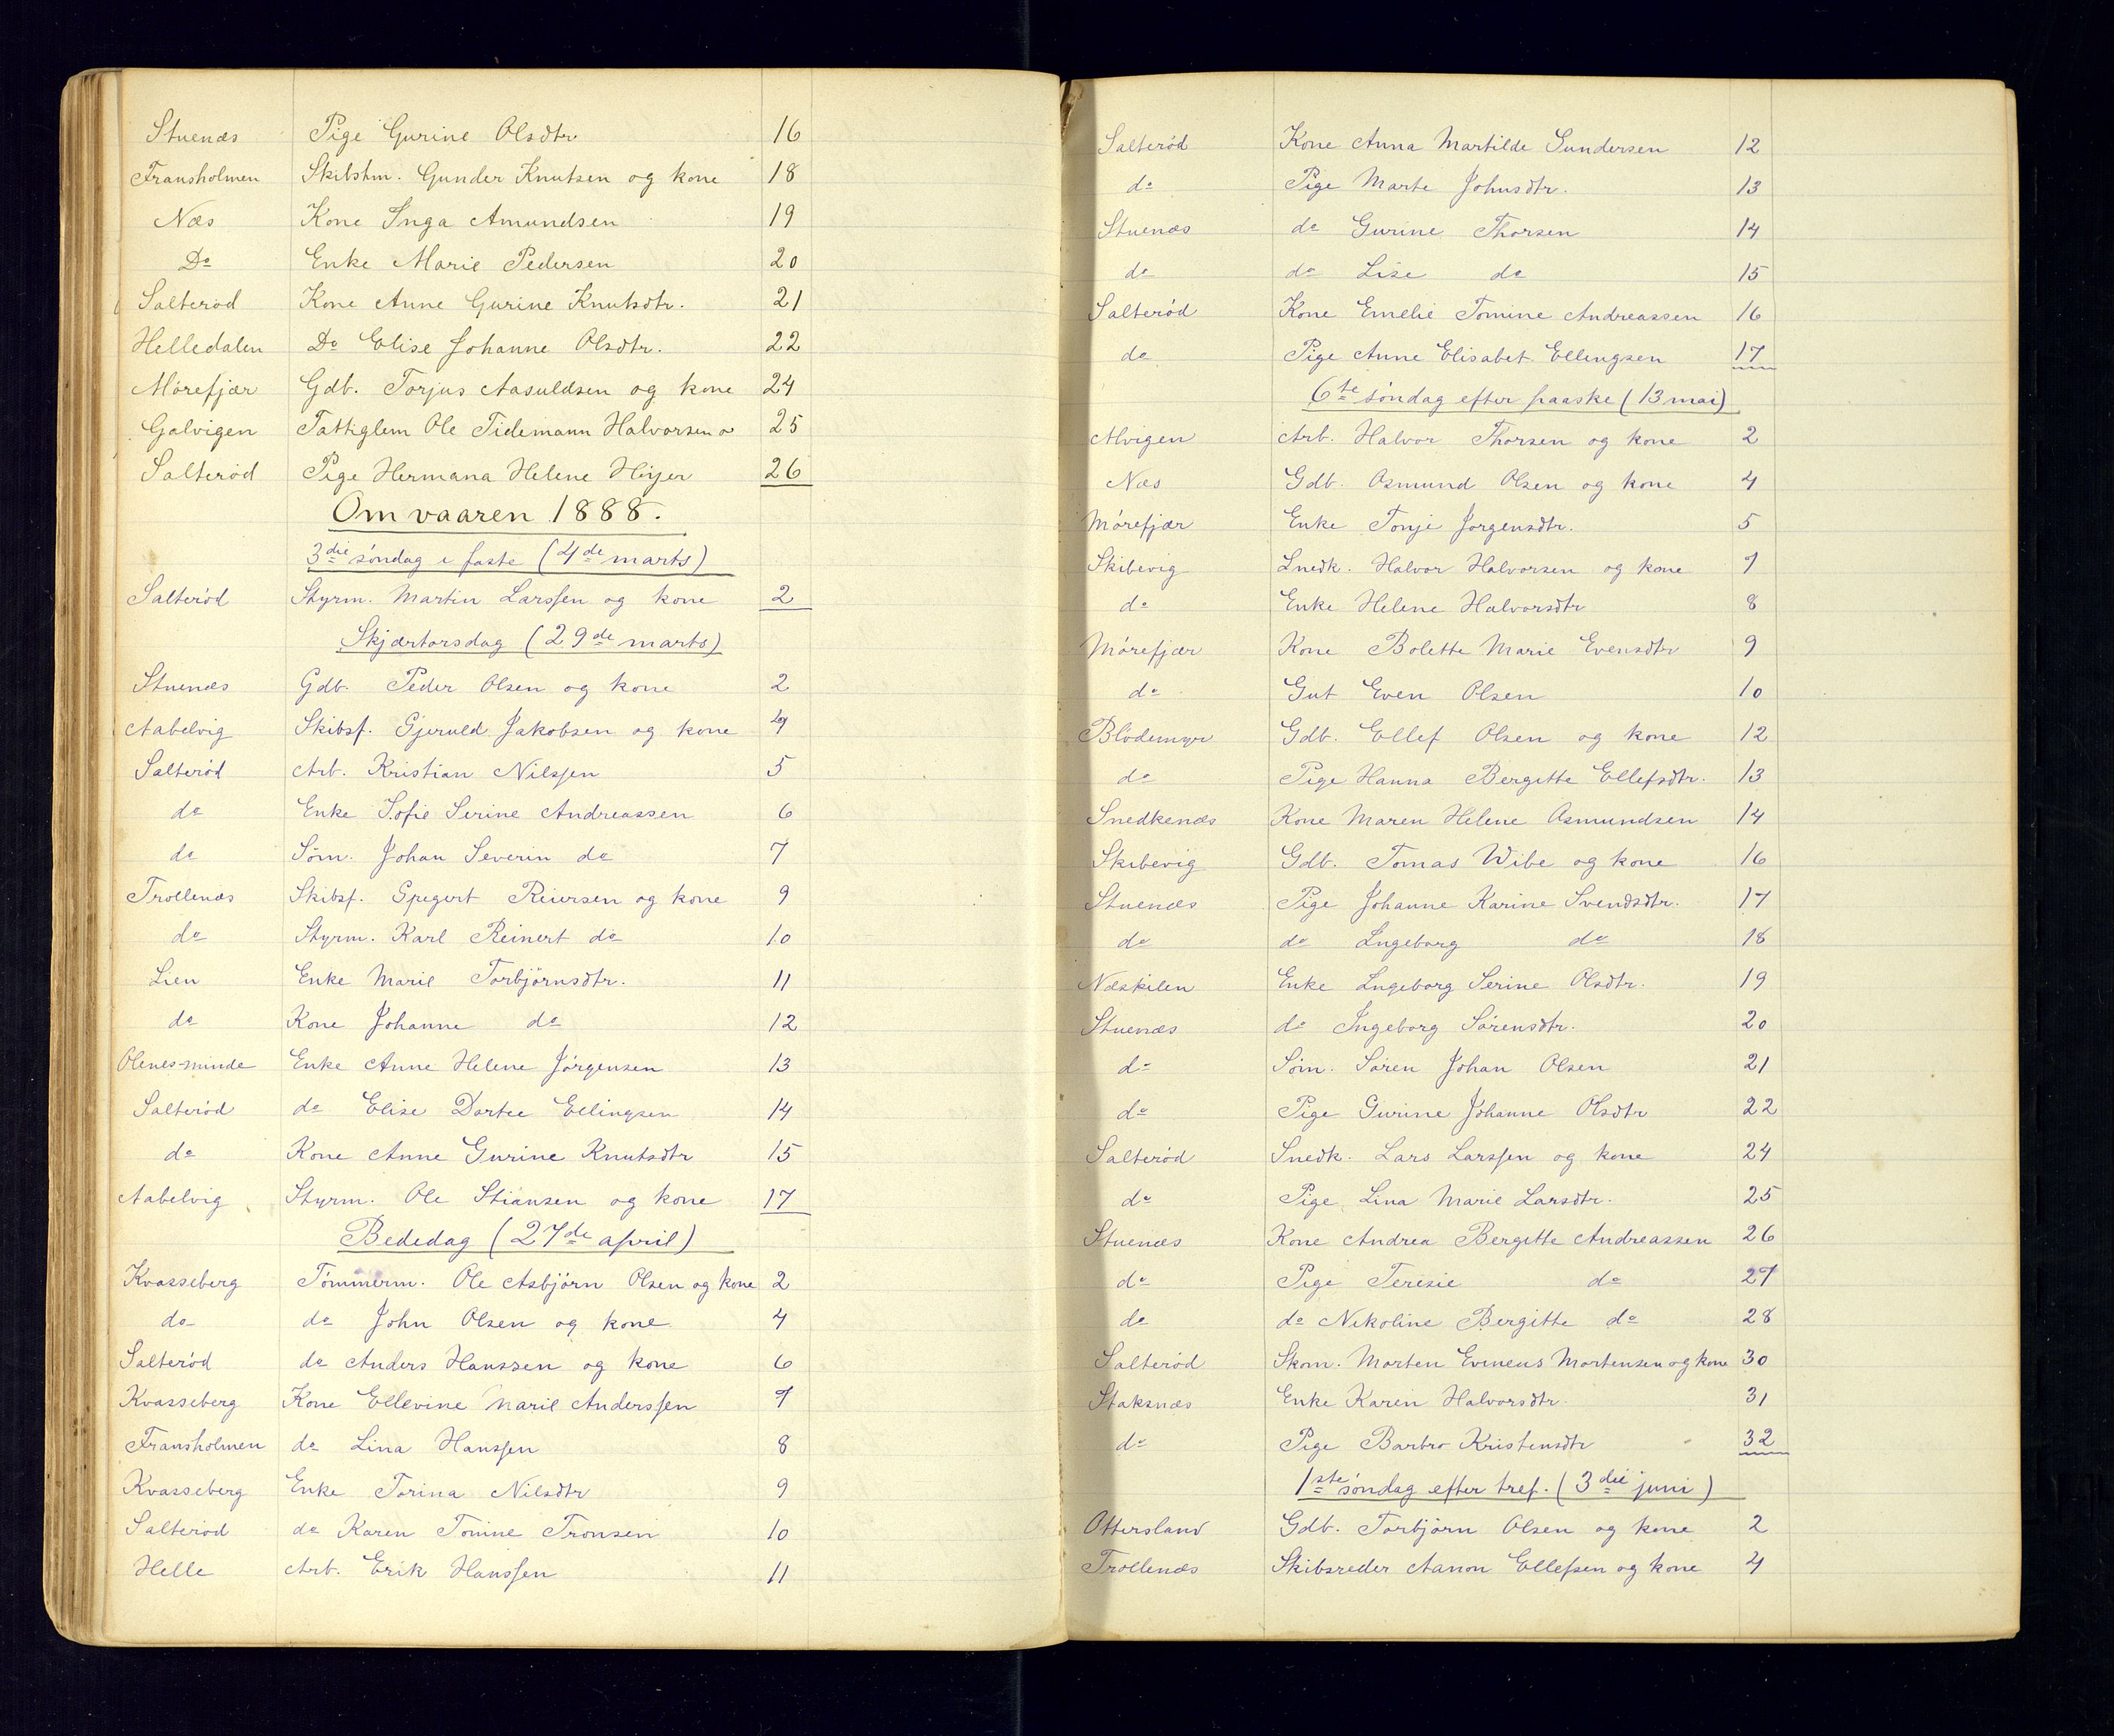 Stuenæs Pige Gurine Olsdtr 16
Fransholmen Skibstm. Gunder Knutsen og kone 18
Næs Kone Inga Amundsen 19
Do Enke Marie Pedersen 20
Salterød Kone Anne Gurine Knutsdtr. 21
Helledalen Do Elise Johanne Olsdtr. 22
Mørefjær Gdb. Torjus Aasuldsen og kone 24
Galvigen Fattiglem Ole Tidemann Halvorsen 25
Salterød Pige Hermana Helene Höyer 26
Om vaaren 1888.
3die søndag i faste (4de marts)
Salterød Styrm. Martin Larssen og kone 2
Skjærtorsdag (29de marts)
Stuenæs Gdb. Peder Olsen og kone 2
Aabelvig Skibsf. Gjeruld Jakobsen og kone 4
Salterød Arb. Kristian Nilssen 5
do Enke Sofie Serine Andreassen 6
do Söm. Johan Severin do 7
Trollenæs Skibsf. Reiersen og kone 9
do Styrm. Karl Reinert do 10
Lien Enke Marie Torbjørnsdtr. 11
do Kone Johanne do 12
Olenes-minde Enke Anne Helene Jørgensen 13
Salterød do Elise Dortee Ellingsen 14
do Kone Anne Gurine Knutsdtr 15
Aabelvig Styrm. Ole Stiansen og kone 17
Bededag (27de april)
Kvasseberg Tømmerm. Ole Asbjörn Olsen og kone 2
do do John Olsen og kone 4
Salterød do Anders Hanssen og kone 6
Kvasseberg Kone Ellevine Marie Anderssen 7
Fransholmen do Lina Hanssen 8
Kvasseberg Enke Torina Nilsdtr 9
Salterød do Karen Tomine Tronsen 10
Helle Arb. Erik Hanssen 11
Salterød Kone Anna Martilde Gundersen 12
do Pige Marte Johnsdtr. 13
Stuenæs do Gurine Thorsen 14
do do Lise do 15
Salterød Kone Emelie Tomine Andreassen 16
do Pige Anne Elisabet Ellingsen 17
6te søndag efter paaske (13 mai)
Alvigen Arb. Halvor Thorsen og kone 2
Næs Gdb. Osmund Olsen og kone 4
Mørefjær Enke Tonje Jorgensdtr. 5
Skibevig Snedk. Halvor Halvorsen og kone 7
do Enke Helene Halvorsdtr 8
Mørefjær Kone Bolette Marie Evensdtr 9
do Gut Even Olsen 10
Blødemyr Gdb. Ellef Olsen og kone 12
do Pige Hanna Bergitte Ellefsdtr. 13
Snedkenæs Kone Maren Helene Asmundsen 14
Skibevig Gdb. Tomas Wibe og kone 16
Stuenæs Pige Johanne Karine Svendsdtr. 17
do do Ingeborg do 18
Næskilen Enke Ingeborg Serine Olsdtr. 19
Stuenæs do Ingeborg Sørensdtr. 20
do Söm. Søren Johan Olsen 21
do Pige Gurine Johanne Olsdtr 22
Salterød Snedk. Lars Larssen og kone 24
do Pige Lina Marie Larsdtr. 25
Stuenæs Kone Andrea Bergitte Andreassen 26
do Pige Teresie do 27
do do Nikoline Bergitte do 28
Salterød Skom. Morten Mortensen og kone 30
Staksnæs Enke Karen Halvorsdtr. 31
do Pige Barbro Kristensdtr 32
1ste søndag efter tref. (3die juni)
Ottersland Gdb. Torbjørn Olsen og kone 2
Trollenæs Skibsreder Aanon Ellefsen og kone 4